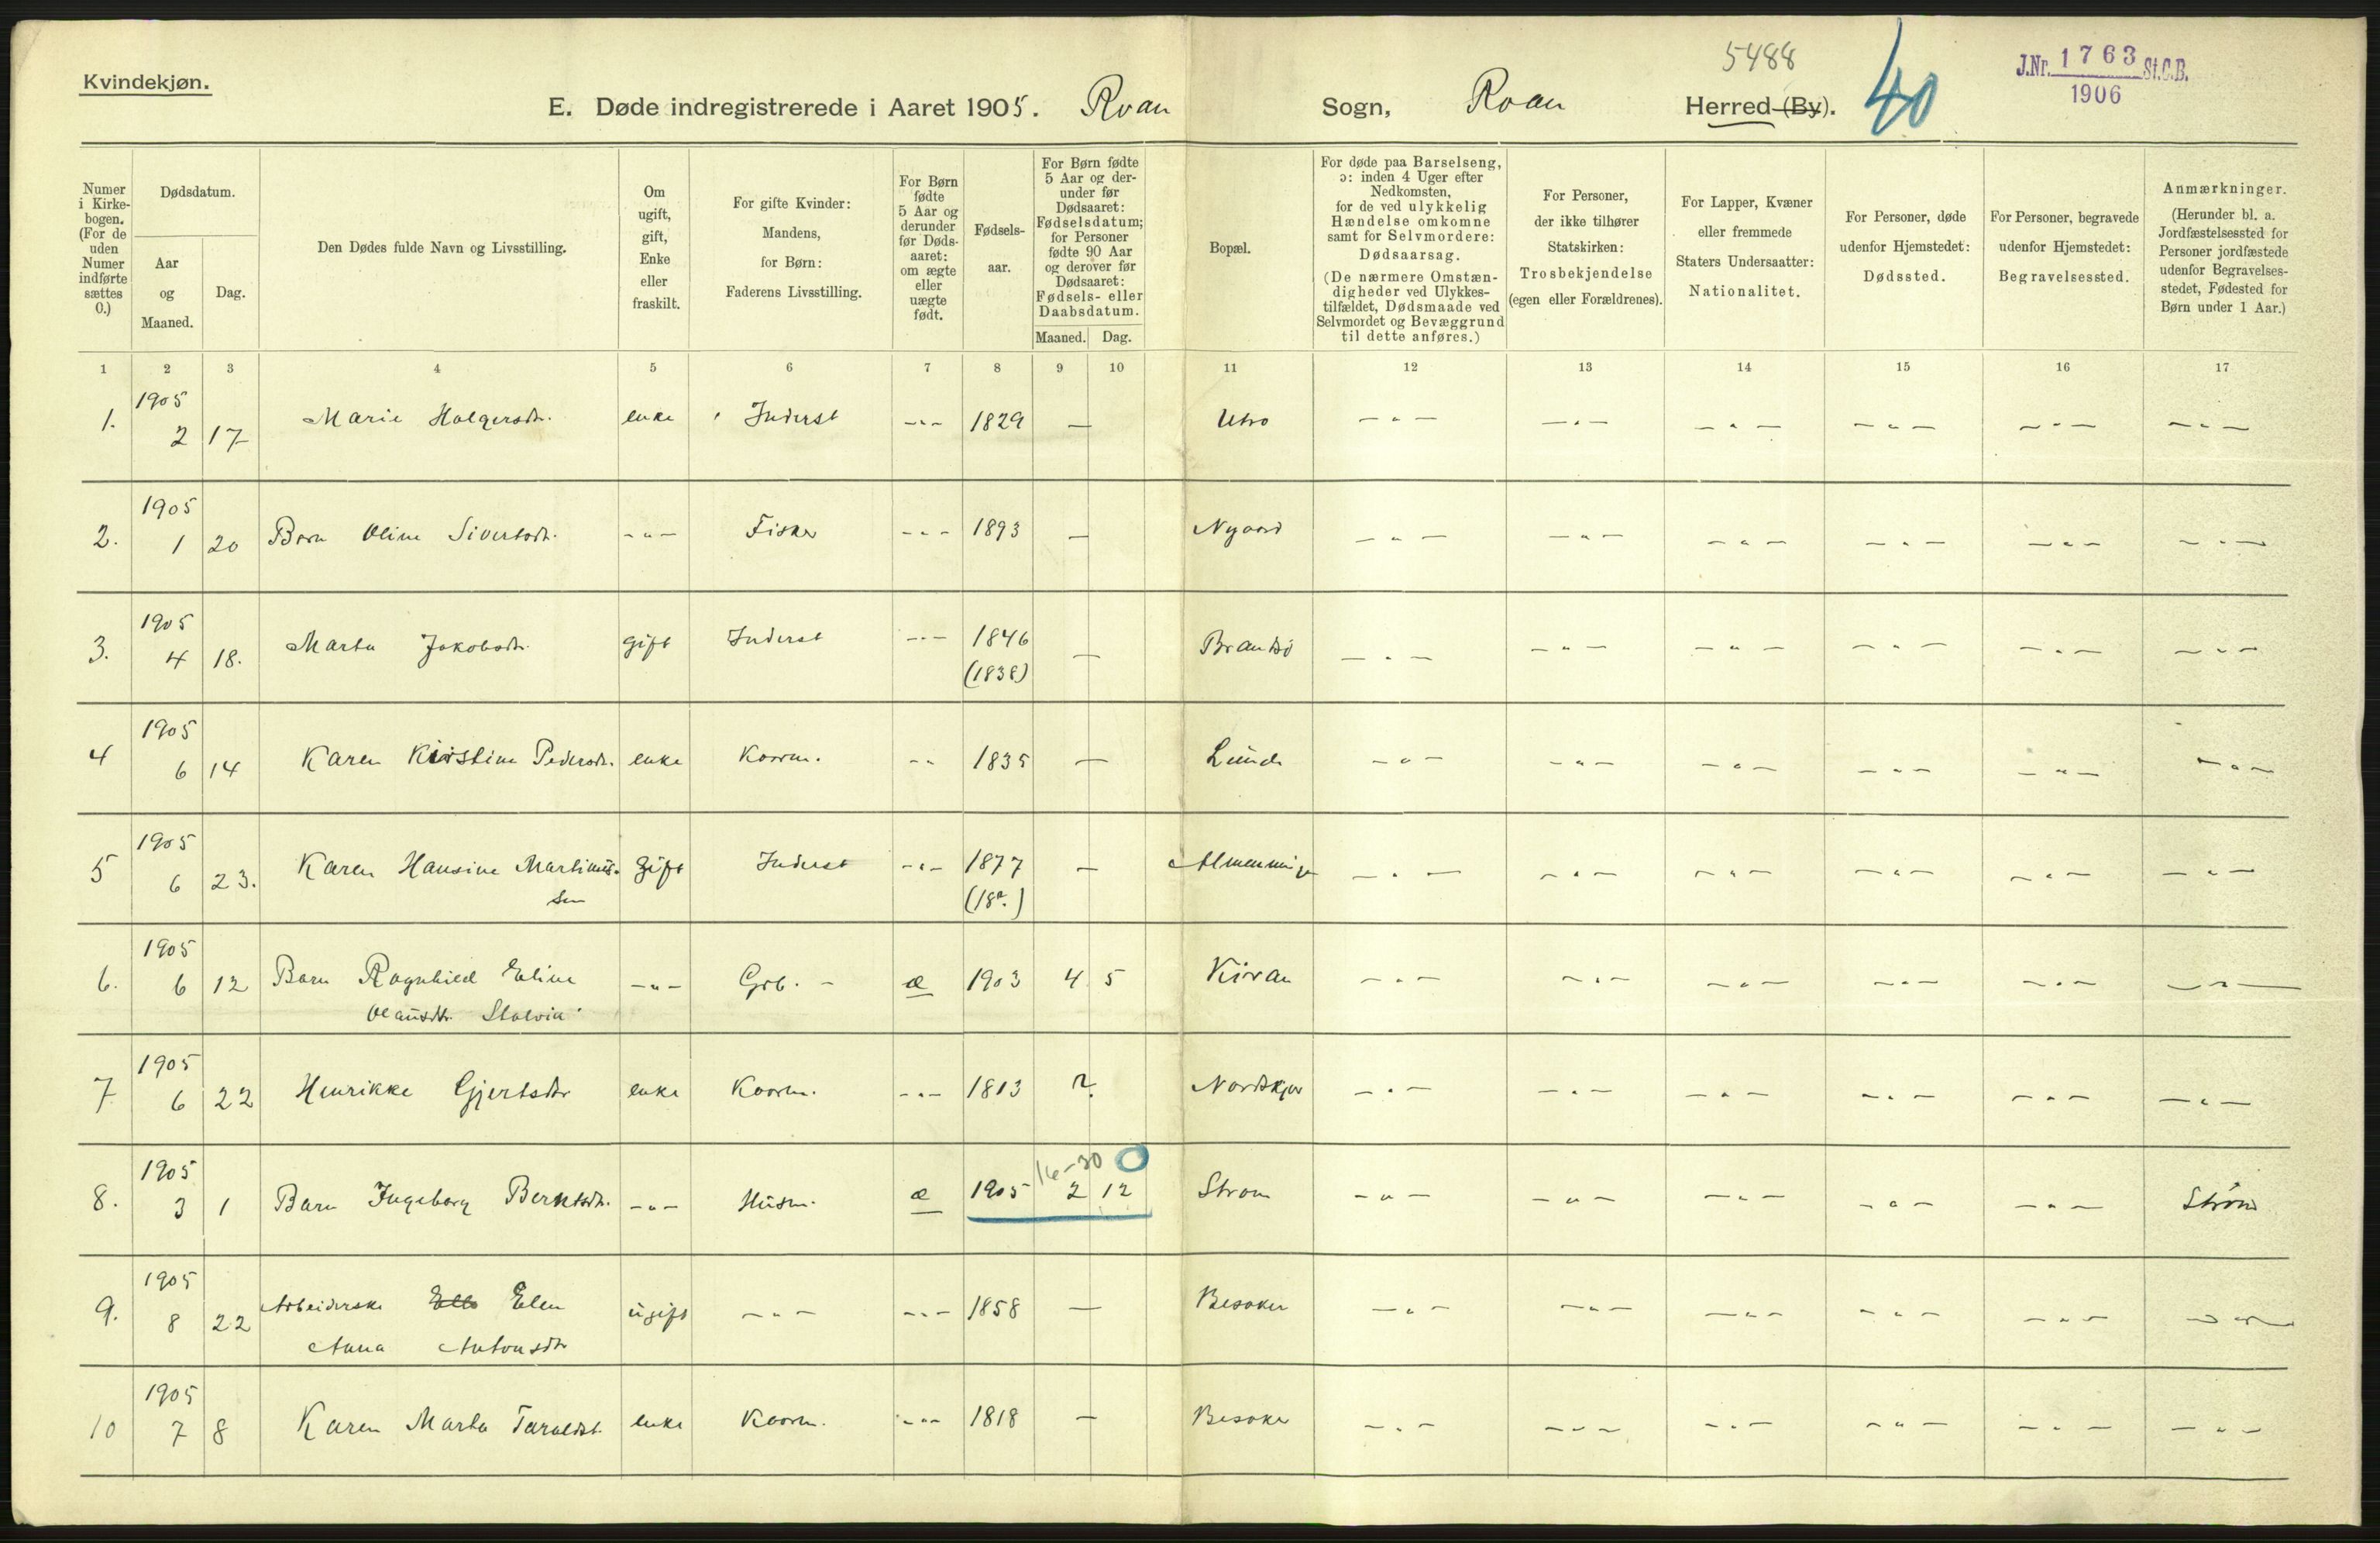 5488
40
J.Nr. 1763 St.C.B.
1906
Kvindekjøn.
E. Døde indregistrerede i Aaret 1905. Roan Sogn, Roan Herred (By).
Numer i Kirke-bogen. (For de uden Numer indførte sættes 0.)
Dødsdatum.
Aar og Maaned.
Dag.
Den Dødes fulde Navn og Livsstilling.
Om ugift, gift, Enke eller fraskilt.
For gifte Kvinder: Mandens, for Børn: Faderens Livsstilling.
For Børn fødte 5 Aar og derunder før Døds-aaret: om ægte eller uægte født.
Fødsels-aar.
For Børn fødte 5 Aar og der-under før Dødsaaret: Fødselsdatum; for Personer fødte 90 Aar og derover før Dødsaaret: Fødsels- eller Daabsdatum.
Maaned. Dag.
Bopæl.
For døde paa Barselseng, ɔ: inden 4 Uger efter Nedkomsten, for de ved ulykkelig Hændelse omkomne samt for Selvmordere: Dødsaarsag.
(De nærmere Omstæn-digheder ved Ulykkes-tilfældet, Dødsmaade ved Selvmordet og Bevæggrund til dette anføres.)
For Personer, der ikke tilhører Statskirken: Trosbekjendelse (egen eller Forældrenes).
For Lapper, Kvæner eller fremmede Staters Undersaatter: Nationalitet.
For Personer, døde udenfor Hjemstedet: Dødssted.
For Personer, begravede udenfor Hjemstedet: Begravelsessted.
Anmærkninger.
(Herunder bl. a. Jordfæstelsessted for Personer jordfæstede udenfor Begravelses-stedet, Fødested for Børn under 1 Aar.)
1 2 3 4 5 6 7 8 9 10 11 12 13 14 15 16 17
1. 1905 2 17 Marie Holgersdtr. enke Inderst -"- 1829 — Utro -"- -"- -"- -"- -"- -"-
2. 1905 1 20 Barn Oline Sivertsdtr. -"- Fisker -"- 1893 — Nygaard -"- -"- -"- -"- -"- -"-
3. 1905 4 18. Marta Jakobsdtr. gift Inderst -"- 1846 (1838) — Brandsø -"- -"- -"- -"- -"- -"-
4 1905 6 14 Karen Kirstine Pedersdtr. enke Kaarm. -"- 1835 — Lunde -"- -"- -"- -"- -"- -"-
5 1905 6 23. Karen Hansine Martinus-sen gift Inderst -"- 1877 — -"- -"- -"- -"- -"- -"-
6. 1905 6 12 Barn Ragnhild Eline Olausdtr. -"- Grb. æ 1903 4 5 Kiran -"- -"- -"- -"- -"- -"-
7 1905 6 22 Henrikke Gjertsdtr enke Kaarm. -"- 1813 ? Nordskjør -"- -"- -"- -"- -"- -"-
8. 1905 3 1 Barn Ingeborg Berntsdtr. -"- Husm. æ 1905 16-30 0 2 12 Strøm -"- -"- -"- -"- -"- Strøm
9. 1905 8 22 Arbeiderske Elen Anna Antonsdtr ugift -"- -"- 1858 — Besaker -"- -"- -"- -"- -"- -"-
10 1905 7 8 Karen Marta Taraldst. enke Kaarm. -"- 1818 — Besaker -"- -"- -"- -"- -"- -"-